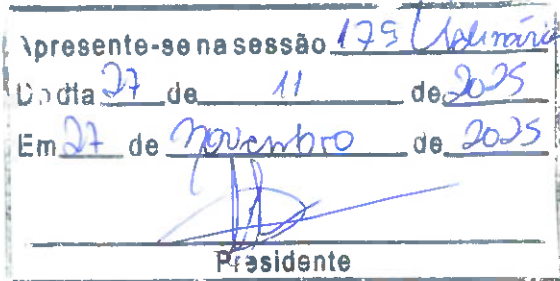 Apresente-se na sessão 175 Ordinária
Do dia 27 de 11 de 2025
Em 27 de novembro de 2025
Presidente